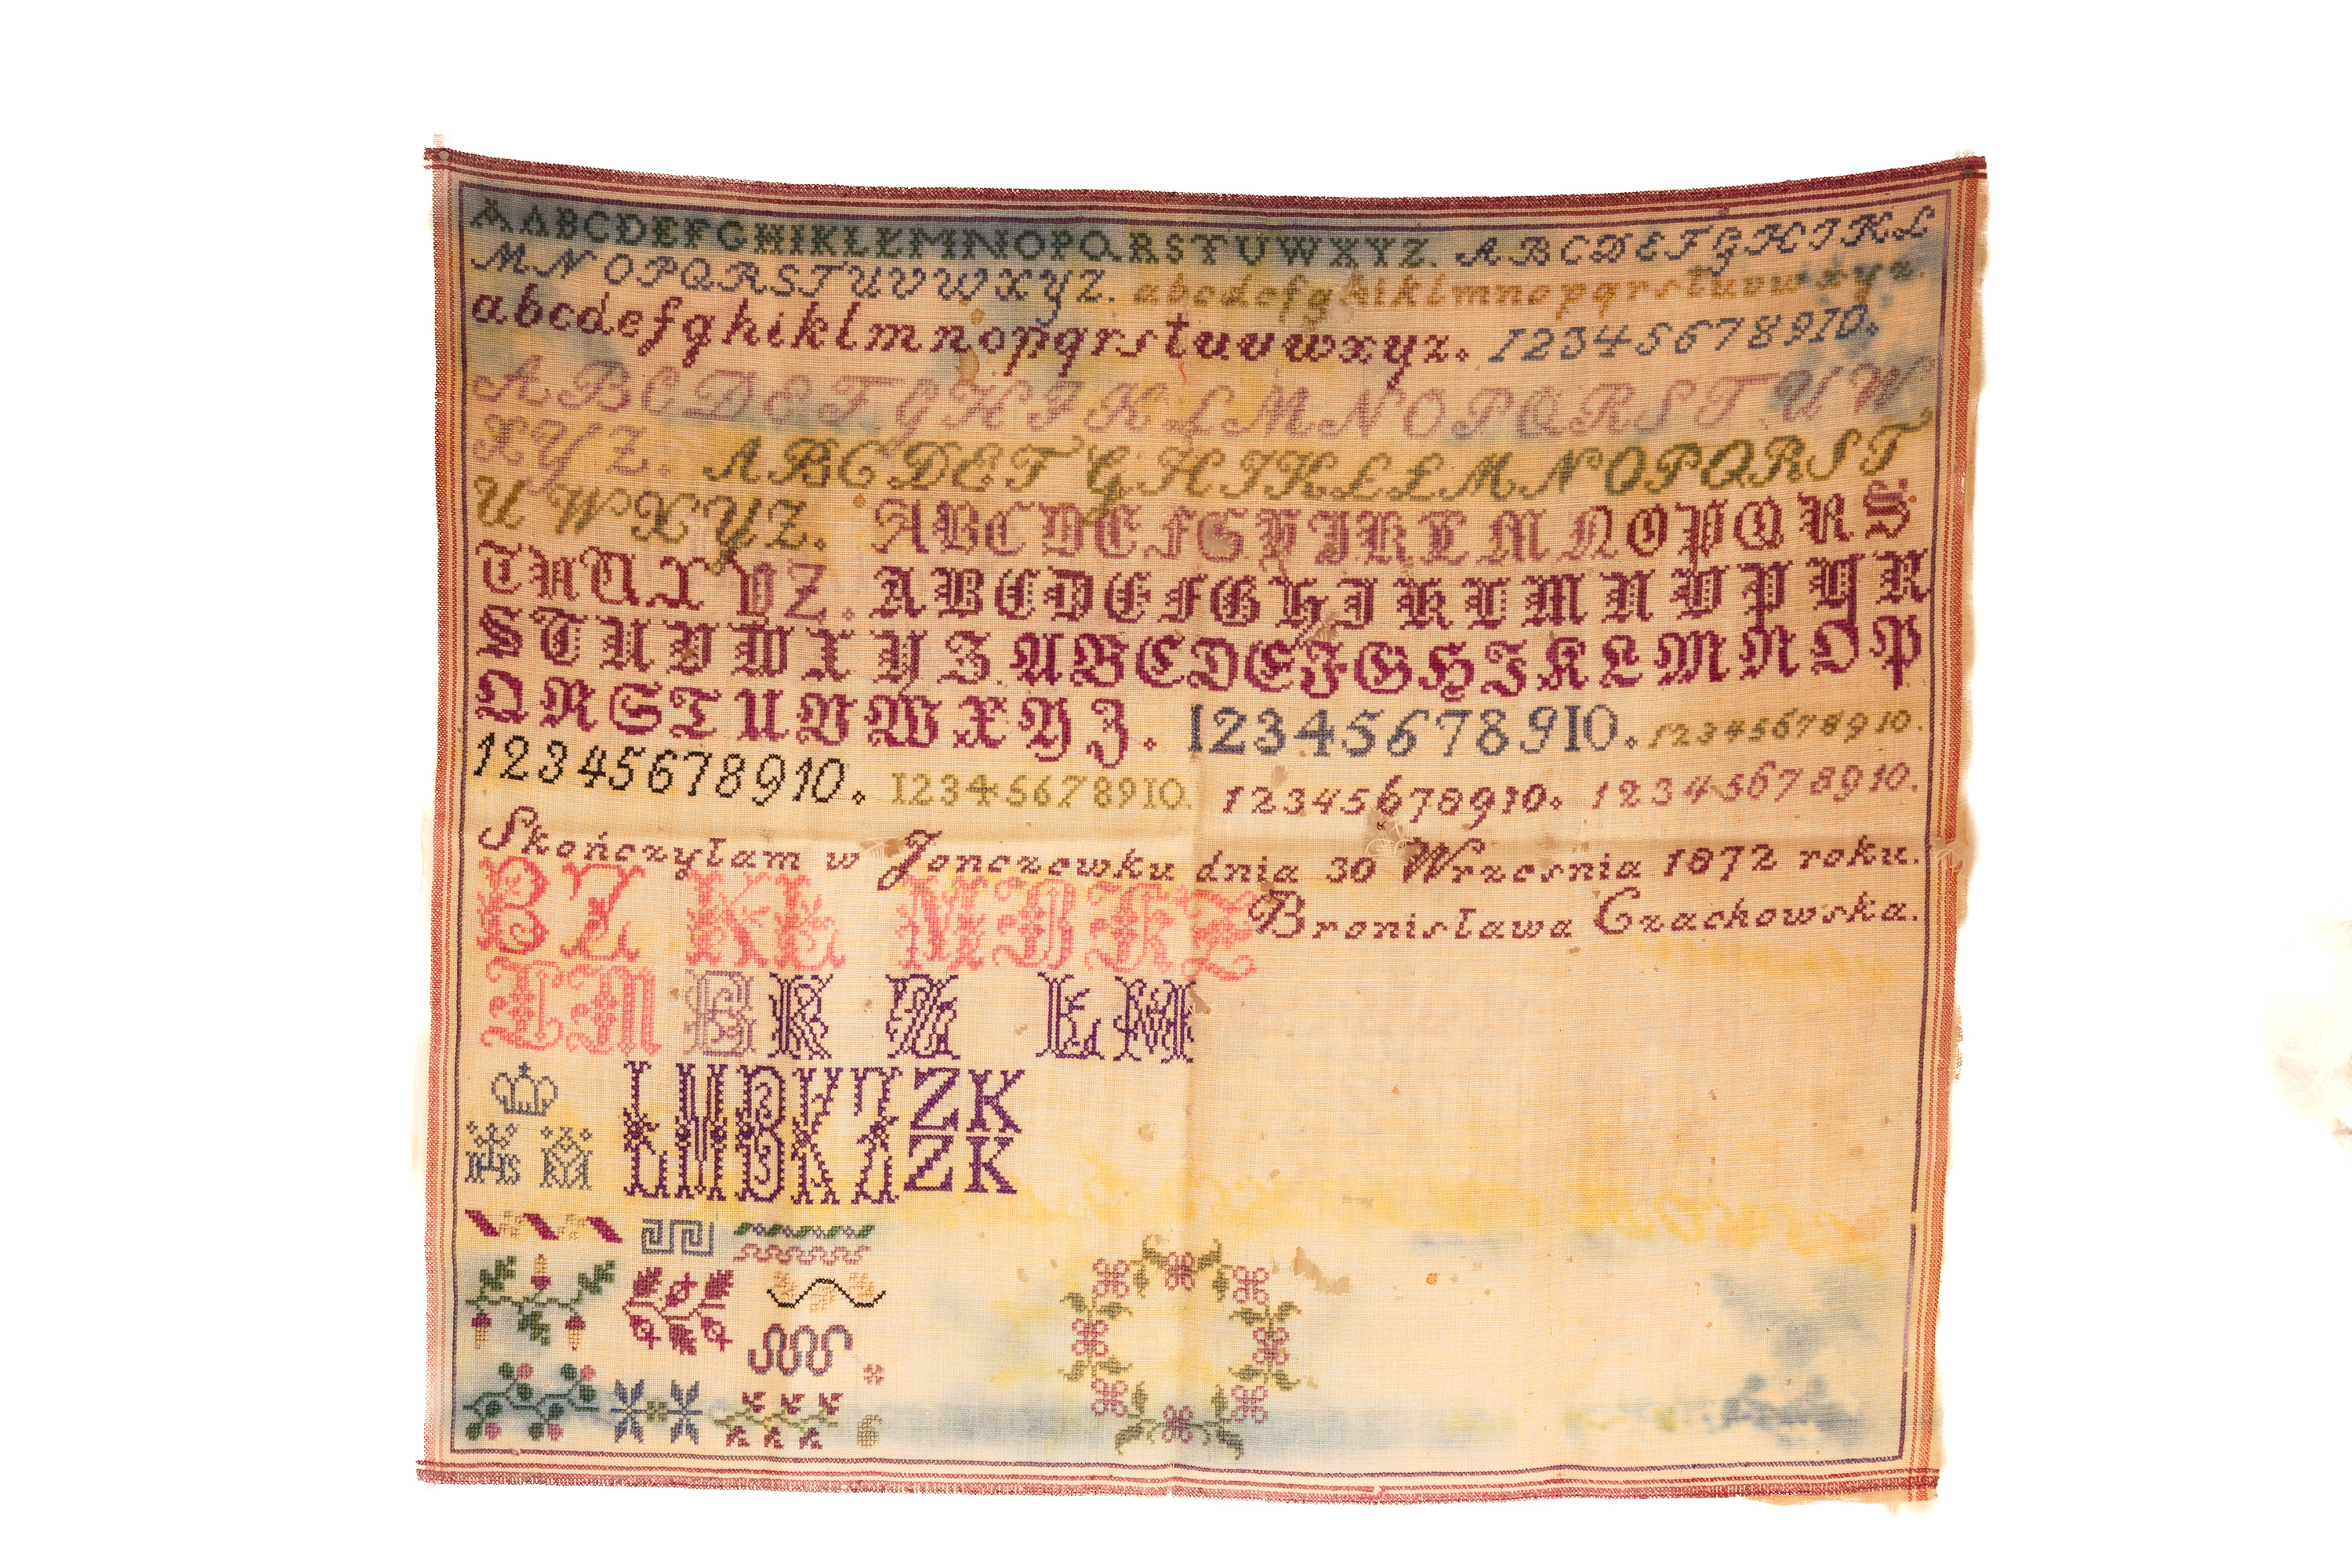 AABCDEFGHIKLŁMNOPQRSTUWXYZ. ABCDEFGHIKL
MNOPQRSTUVWXYZ. abcdefghiklmnopqrstuvwxyz.
abcdefghiklmnopqrstuvwxyz. 12345678910.
ABCDEFGHIKLMNOPQRSTUW
XYZ. ABCDEFGHIKLŁMNOPQRST
UWXYZ. ABCDEFGHIKLMNOPQRS
TWUXYZ. ABCDEFGHIKLMNOPQR
STUVWXYZ. ABCDEFGHIKLMNOP
QRSTUVWXYZ. 12345678910. 12345678910.
12345678910. 12345678910. 12345678910. 12345678910.
Skończyłam w Jonczewku dnia 30 Wrzesnia 1872 roku.
Bronisława Czachowska.
BZ KL MBKZ
LM BK Z LM
ZK
IHS LMBKZ ZK
6